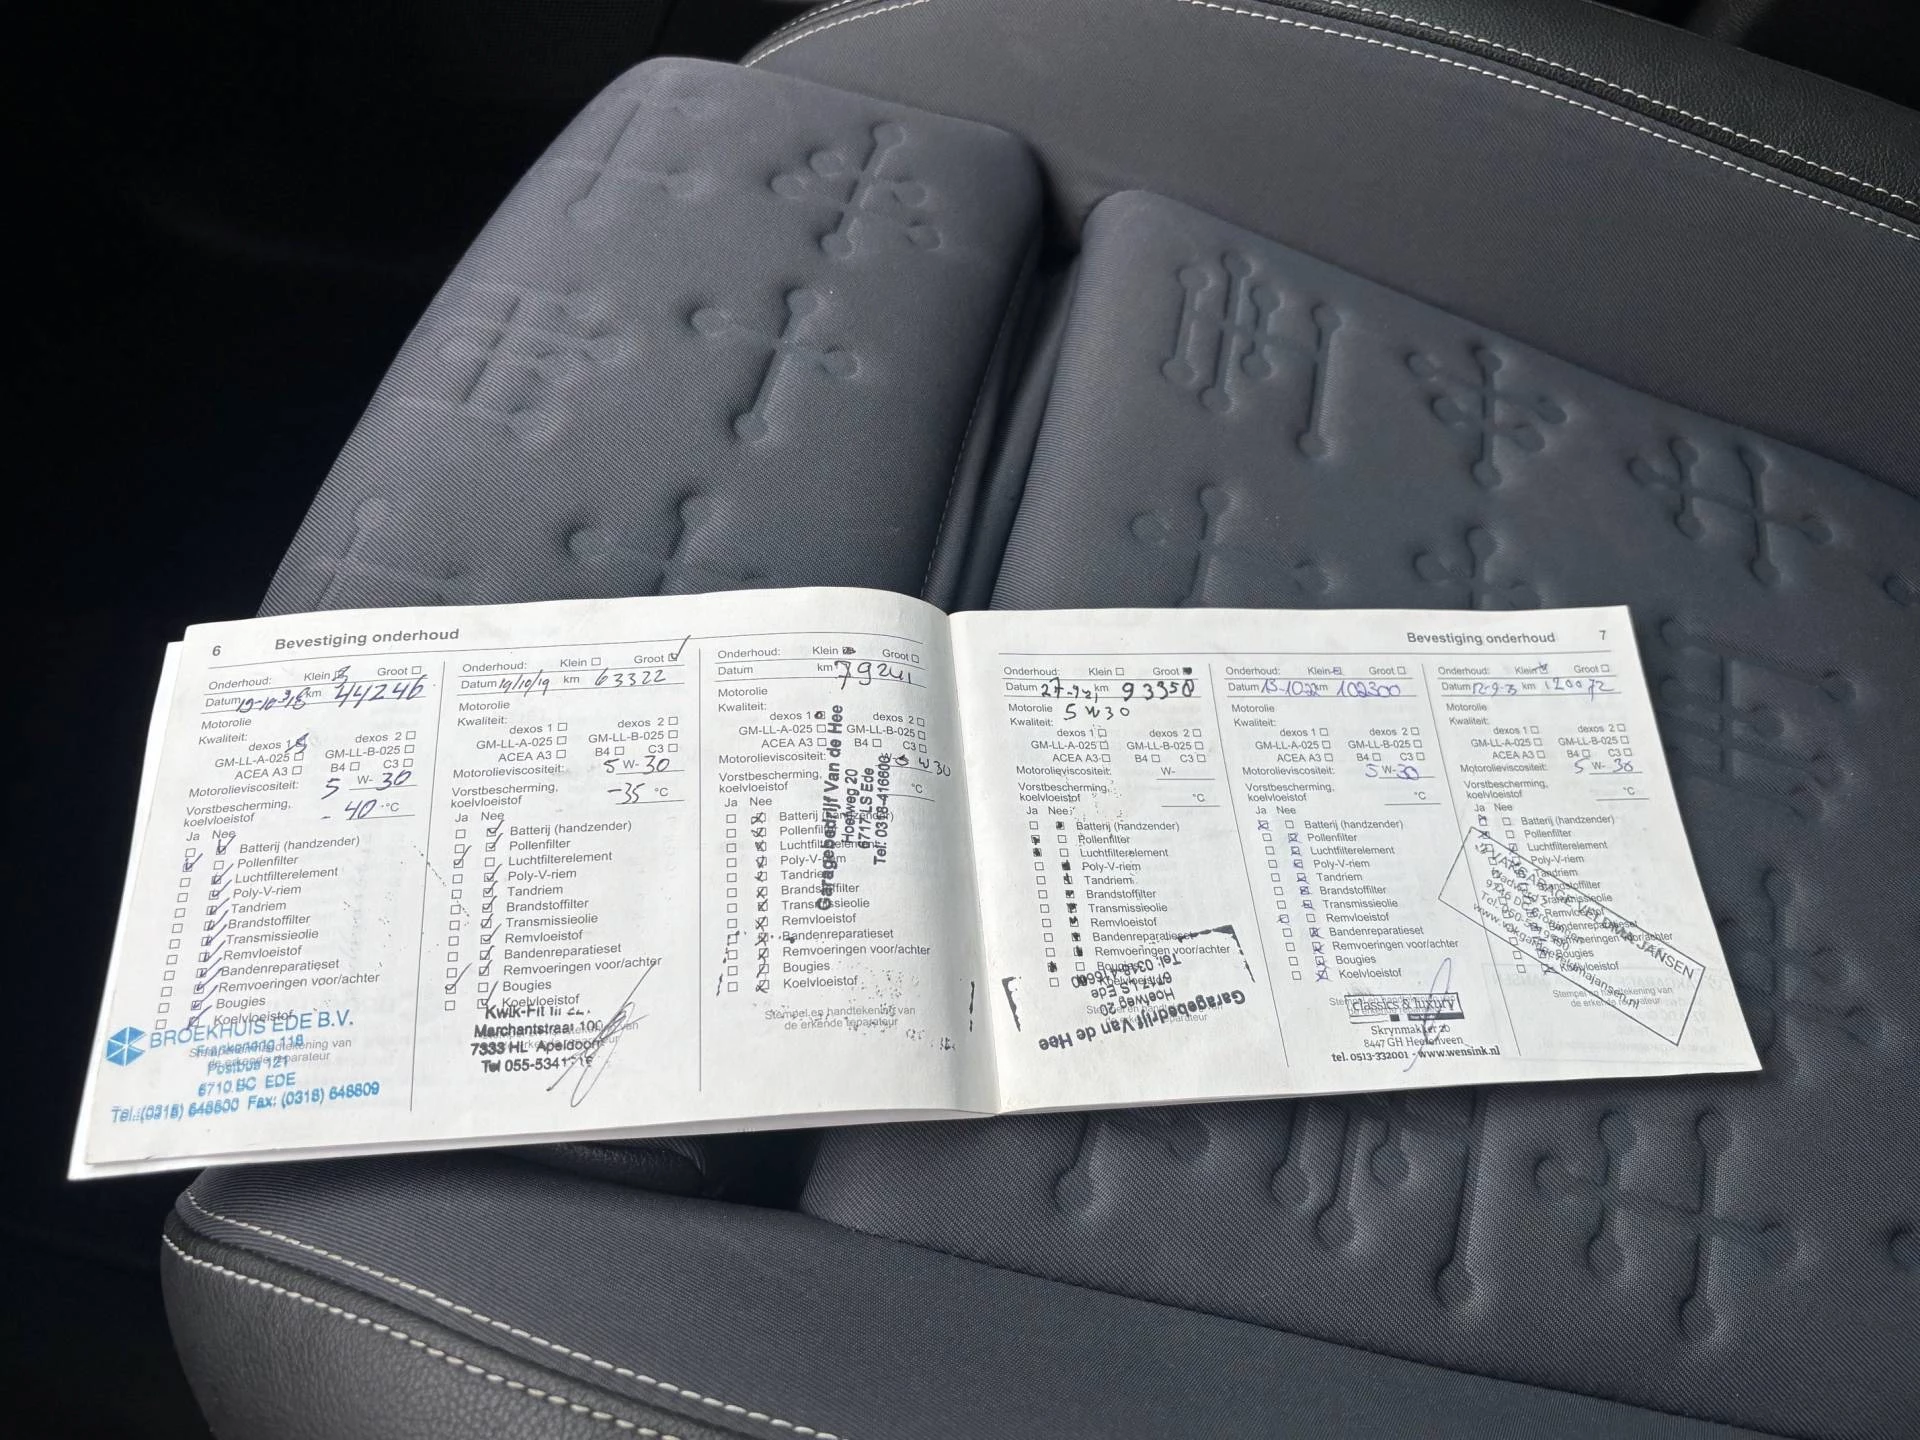 6 Bevestiging onderhoud
Onderhoud: Klein Groot
Datum km 44246
Motorolie
Kwaliteit:
dexos 1 dexos 2
GM-LL-A-025 GM-LL-B-025
ACEA A3 B4 C3
Motorolieviscositeit: 5 W- 30
Vorstbescherming,
koelvloeistof - 40 °C
Ja Nee
Batterij (handzender)
Pollenfilter
Luchtfilterelement
Poly-V-riem
Tandriem
Brandstoffilter
Transmissieolie
Remvloeistof
Bandenreparatieset
Remvoeringen voor/achter
Bougies
Koelvloeistof
Stempel en handtekening van
de erkende reparateur
BROEKHUIS EDE B.V.
Postbus 121
6710 BC EDE
Tel.:(0318) 648800 Fax: (0318) 648809
Onderhoud: Klein Groot
Datum 19/10/19 km 63322
Motorolie
Kwaliteit:
dexos 1 dexos 2
GM-LL-A-025 GM-LL-B-025
ACEA A3 B4 C3
Motorolieviscositeit: 5 W- 30
Vorstbescherming,
koelvloeistof -35 °C
Ja Nee
Batterij (handzender)
Pollenfilter
Luchtfilterelement
Poly-V-riem
Tandriem
Brandstoffilter
Transmissieolie
Remvloeistof
Bandenreparatieset
Remvoeringen voor/achter
Bougies
Koelvloeistof
Kwik-Fit
Marchantstraat 100
7333 HL Apeldoorn
Tel 055-5341
Onderhoud: Klein Groot
Datum km 79241
Motorolie
Kwaliteit:
dexos 1 dexos 2
GM-LL-A-025 GM-LL-B-025
ACEA A3 B4 C3
Motorolieviscositeit: 5 W 30
Vorstbescherming,
koelvloeistof °C
Ja Nee
Batterij (handzender)
Pollenfilter
Luchtfilterelement
Poly-V-riem
Tandriem
Brandstoffilter
Transmissieolie
Remvloeistof
Bandenreparatieset
Remvoeringen voor/achter
Bougies
Koelvloeistof
Stempel en handtekening van
de erkende reparateur
Garagebedrijf Van de Hee
Hoeiweg 20
6717 LS Ede
Tel: 0318-416600
Bevestiging onderhoud 7
Onderhoud: Klein Groot
Datum km 93350
Motorolie 5 W 30
Kwaliteit:
dexos 1 dexos 2
GM-LL-A-025 GM-LL-B-025
ACEA A3 B4 C3
Motorolieviscositeit: W-
Vorstbescherming,
koelvloeistof °C
Ja Nee
Batterij (handzender)
Pollenfilter
Luchtfilterelement
Poly-V-riem
Tandriem
Brandstoffilter
Transmissieolie
Remvloeistof
Bandenreparatieset
Remvoeringen voor/achter
Bougies
Koelvloeistof
Garagebedrijf Van de Hee
Hoeiweg 20
6717 LS Ede
Onderhoud: Klein Groot
Datum 15-10-22 km 102300
Motorolie
Kwaliteit:
dexos 1 dexos 2
GM-LL-A-025 GM-LL-B-025
ACEA A3 B4 C3
Motorolieviscositeit: 5 W- 30
Vorstbescherming,
koelvloeistof °C
Ja Nee
Batterij (handzender)
Pollenfilter
Luchtfilterelement
Poly-V-riem
Tandriem
Brandstoffilter
Transmissieolie
Remvloeistof
Bandenreparatieset
Remvoeringen voor/achter
Bougies
Koelvloeistof
classics & luxury
Skrynmakker 20
8447 GH Heerenveen
tel. 0513-332001 - www.wensink.nl
Onderhoud: Klein Groot
Datum km 120072
Motorolie
Kwaliteit:
dexos 1 dexos 2
GM-LL-A-025 GM-LL-B-025
ACEA A3 B4 C3
Motorolieviscositeit: 5 W- 30
Vorstbescherming,
koelvloeistof °C
Ja Nee
Batterij (handzender)
Pollenfilter
Luchtfilterelement
Poly-V-riem
Tandriem
Brandstoffilter
Transmissieolie
Remvloeistof
Bandenreparatieset
Remvoeringen voor/achter
Bougies
Koelvloeistof
Stempel en handtekening van
de erkende reparateur
JANSEN